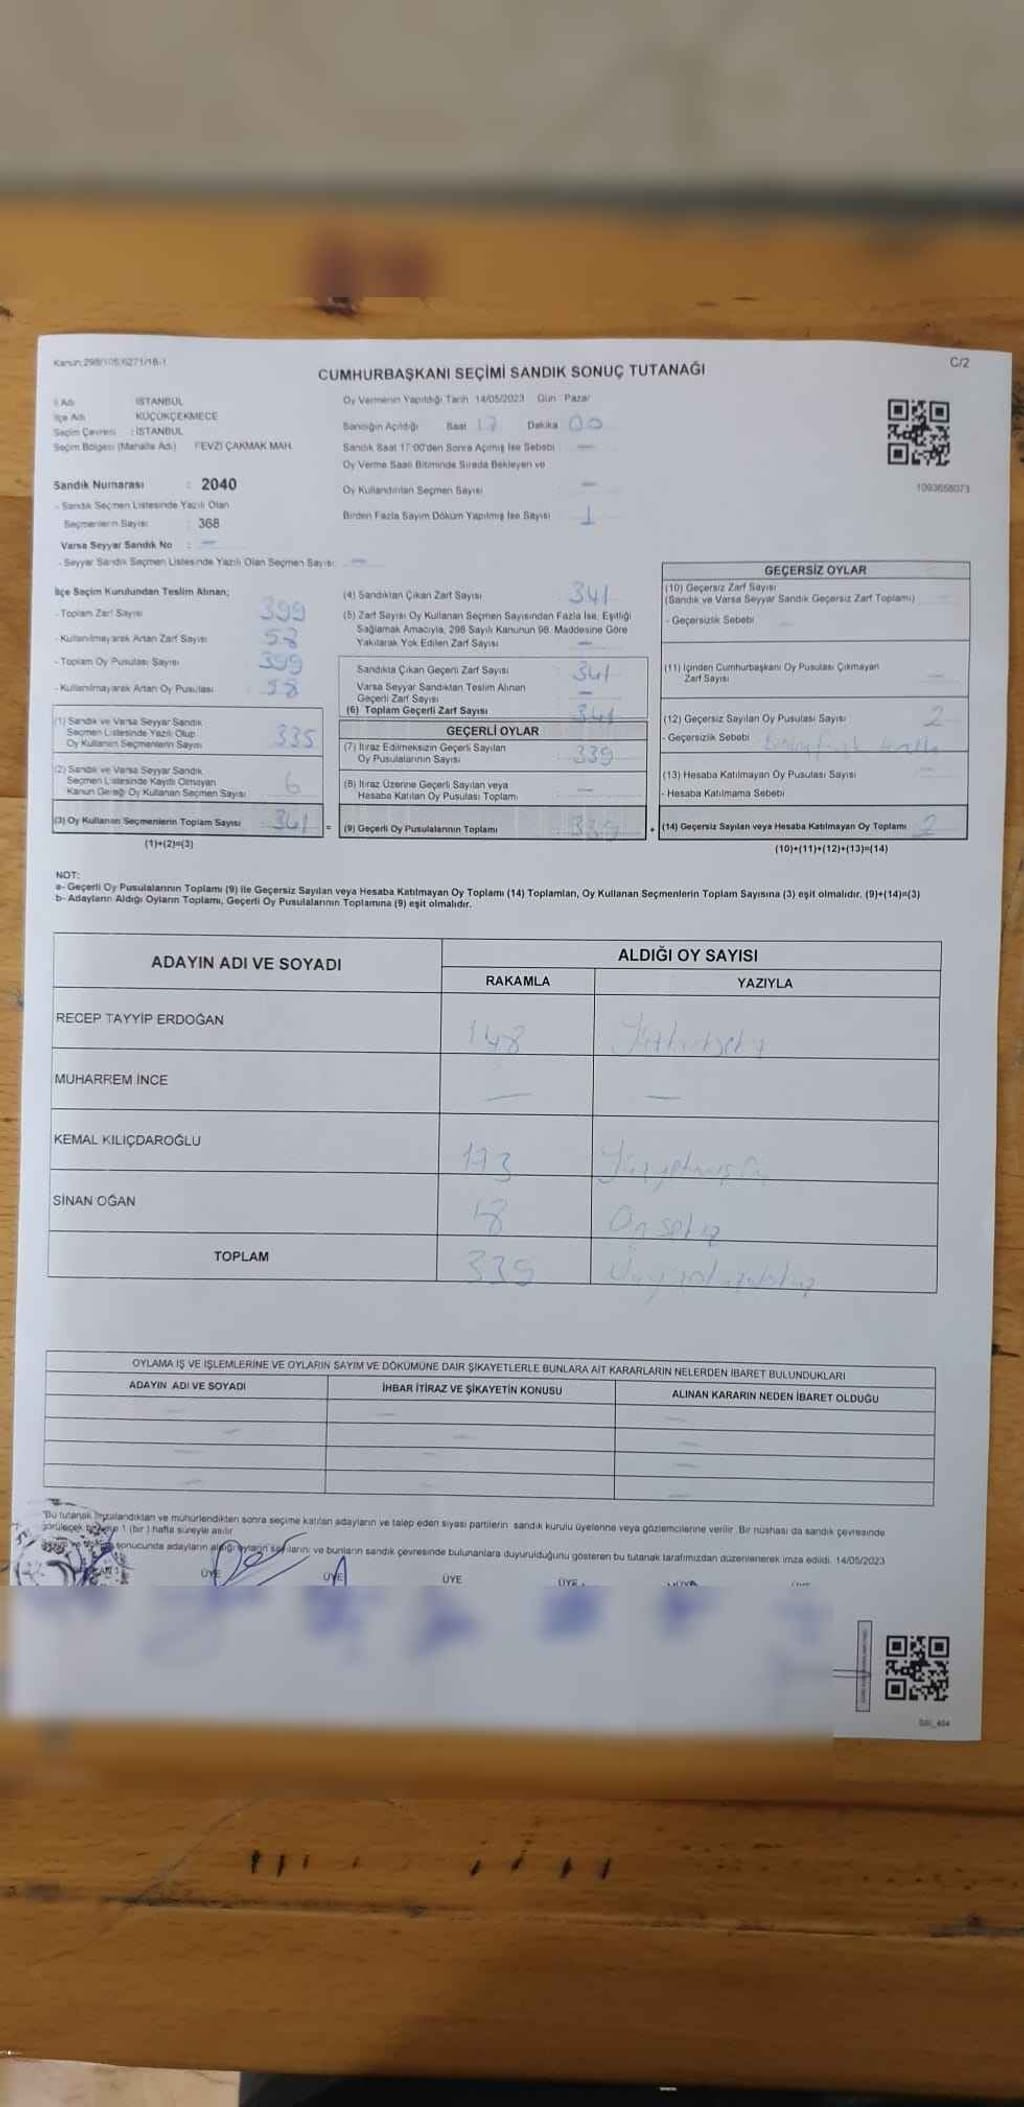 Kanun:298/105;6271/18-1
C/2
CUMHURBAŞKANI SEÇİMİ SANDIK SONUÇ TUTANAĞI
İl Adı : İSTANBUL
İlçe Adı : KÜÇÜKÇEKMECE
Seçim Çevresi : İSTANBUL
Seçim Bölgesi (Mahalle Adı) : FEVZİ ÇAKMAK MAH.
Sandık Numarası : 2040
- Sandık Seçmen Listesinde Yazılı Olan
Seçmenlerin Sayısı : 368
Varsa Seyyar Sandık No : —
- Seyyar Sandık Seçmen Listesinde Yazılı Olan Seçmen Sayısı: —
Oy Vermenin Yapıldığı Tarih : 14/05/2023 Gün : Pazar
Sandığın Açıldığı Saat 17 Dakika 00
Sandık Saat 17:00'den Sonra Açılmış İse Sebebi —
Oy Verme Saati Bitiminde Sırada Bekleyen ve
Oy Kullandırılan Seçmen Sayısı —
Birden Fazla Sayım Döküm Yapılmış İse Sayısı 1
1093658073
İlçe Seçim Kurulundan Teslim Alınan;
- Toplam Zarf Sayısı 399
- Kullanılmayarak Artan Zarf Sayısı 58
- Toplam Oy Pusulası Sayısı 399
- Kullanılmayarak Artan Oy Pusulası 58
(1) Sandık ve Varsa Seyyar Sandık
Seçmen Listesinde Yazılı Olup
Oy Kullanan Seçmenlerin Sayısı 335
(2) Sandık ve Varsa Seyyar Sandık
Seçmen Listesinde Kayıtlı Olmayan
Kanun Gereği Oy Kullanan Seçmen Sayısı 6
(3) Oy Kullanan Seçmenlerin Toplam Sayısı 341
(1)+(2)=(3)
(4) Sandıktan Çıkan Zarf Sayısı 341
(5) Zarf Sayısı Oy Kullanan Seçmen Sayısından Fazla İse, Eşitliği
Sağlamak Amacıyla, 298 Sayılı Kanunun 98. Maddesine Göre
Yakılarak Yok Edilen Zarf Sayısı —
Sandıkta Çıkan Geçerli Zarf Sayısı 341
Varsa Seyyar Sandıktan Teslim Alınan
Geçerli Zarf Sayısı —
(6) Toplam Geçerli Zarf Sayısı 341
GEÇERLİ OYLAR
(7) İtiraz Edilmeksizin Geçerli Sayılan
Oy Pusulalarının Sayısı 339
(8) İtiraz Üzerine Geçerli Sayılan veya
Hesaba Katılan Oy Pusulası Toplamı —
= (9) Geçerli Oy Pusulalarının Toplamı 339
GEÇERSİZ OYLAR
(10) Geçersiz Zarf Sayısı
(Sandık ve Varsa Seyyar Sandık Geçersiz Zarf Toplamı) —
- Geçersizlik Sebebi —
(11) İçinden Cumhurbaşkanı Oy Pusulası Çıkmayan
Zarf Sayısı —
(12) Geçersiz Sayılan Oy Pusulası Sayısı 2
- Geçersizlik Sebebi
(13) Hesaba Katılmayan Oy Pusulası Sayısı —
- Hesaba Katılmama Sebebi
+ (14) Geçersiz Sayılan veya Hesaba Katılmayan Oy Toplamı 2
(10)+(11)+(12)+(13)=(14)
NOT:
a- Geçerli Oy Pusulalarının Toplamı (9) ile Geçersiz Sayılan veya Hesaba Katılmayan Oy Toplamı (14) Toplamları, Oy Kullanan Seçmenlerin Toplam Sayısına (3) eşit olmalıdır. (9)+(14)=(3)
b- Adayların Aldığı Oyların Toplamı, Geçerli Oy Pusulalarının Toplamına (9) eşit olmalıdır.
ADAYIN ADI VE SOYADI
ALDIĞI OY SAYISI
RAKAMLA YAZIYLA
RECEP TAYYİP ERDOĞAN 148 Yüzkırksekiz
MUHARREM İNCE — —
KEMAL KILIÇDAROĞLU 173 Yüzyetmişüç
SİNAN OĞAN 18 Onsekiz
TOPLAM 339 Üçyüzotuzdokuz
OYLAMA İŞ VE İŞLEMLERİNE VE OYLARIN SAYIM VE DÖKÜMÜNE DAİR ŞİKAYETLERLE BUNLARA AİT KARARLARIN NELERDEN İBARET BULUNDUKLARI
ADAYIN ADI VE SOYADI İHBAR İTİRAZ VE ŞİKAYETİN KONUSU ALINAN KARARIN NEDEN İBARET OLDUĞU
Bu tutanak imzalandıktan ve mühürlendikten sonra seçime katılan adayların ve talep eden siyasi partilerin sandık kurulu üyelerine veya gözlemcilerine verilir. Bir nüshası da sandık çevresinde
görülecek bir yere 1 (bir) hafta süreyle asılır.
sonucunda adayların aldığı oyların sayılarını ve bunların sandık çevresinde bulunanlara duyurulduğunu gösteren bu tutanak tarafımızdan düzenlenerek imza edildi. 14/05/2023
ÜYE ÜYE ÜYE ÜYE